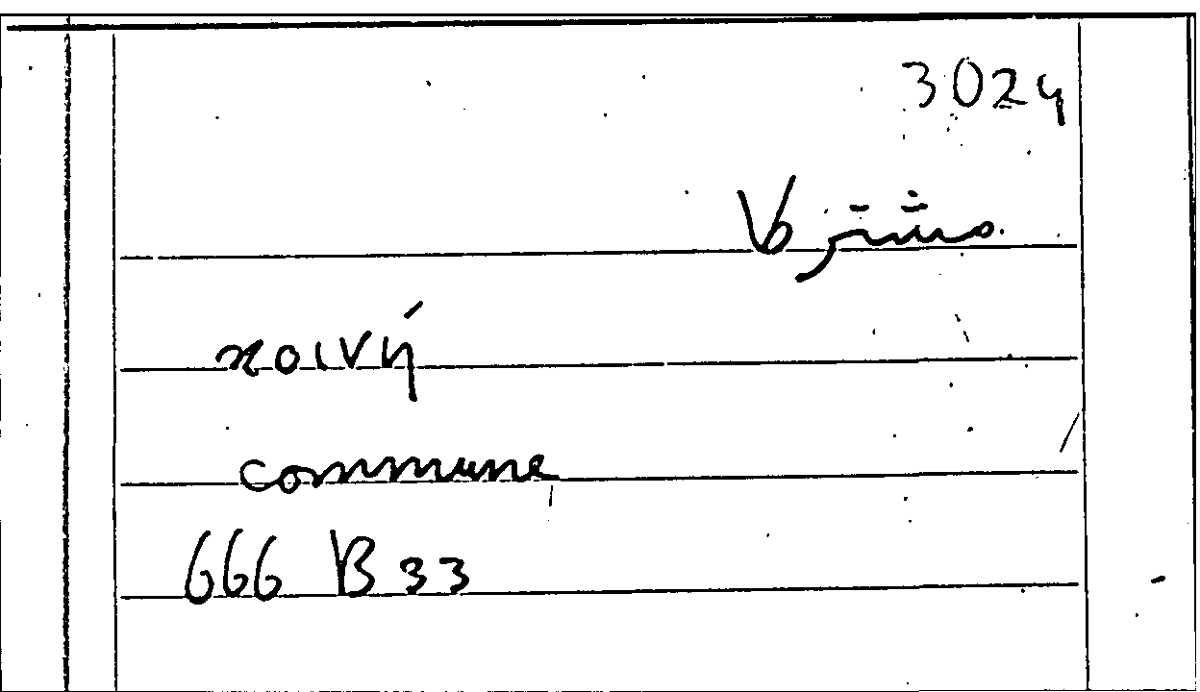 3024
مشترك
κοινή
commune
666 B 33